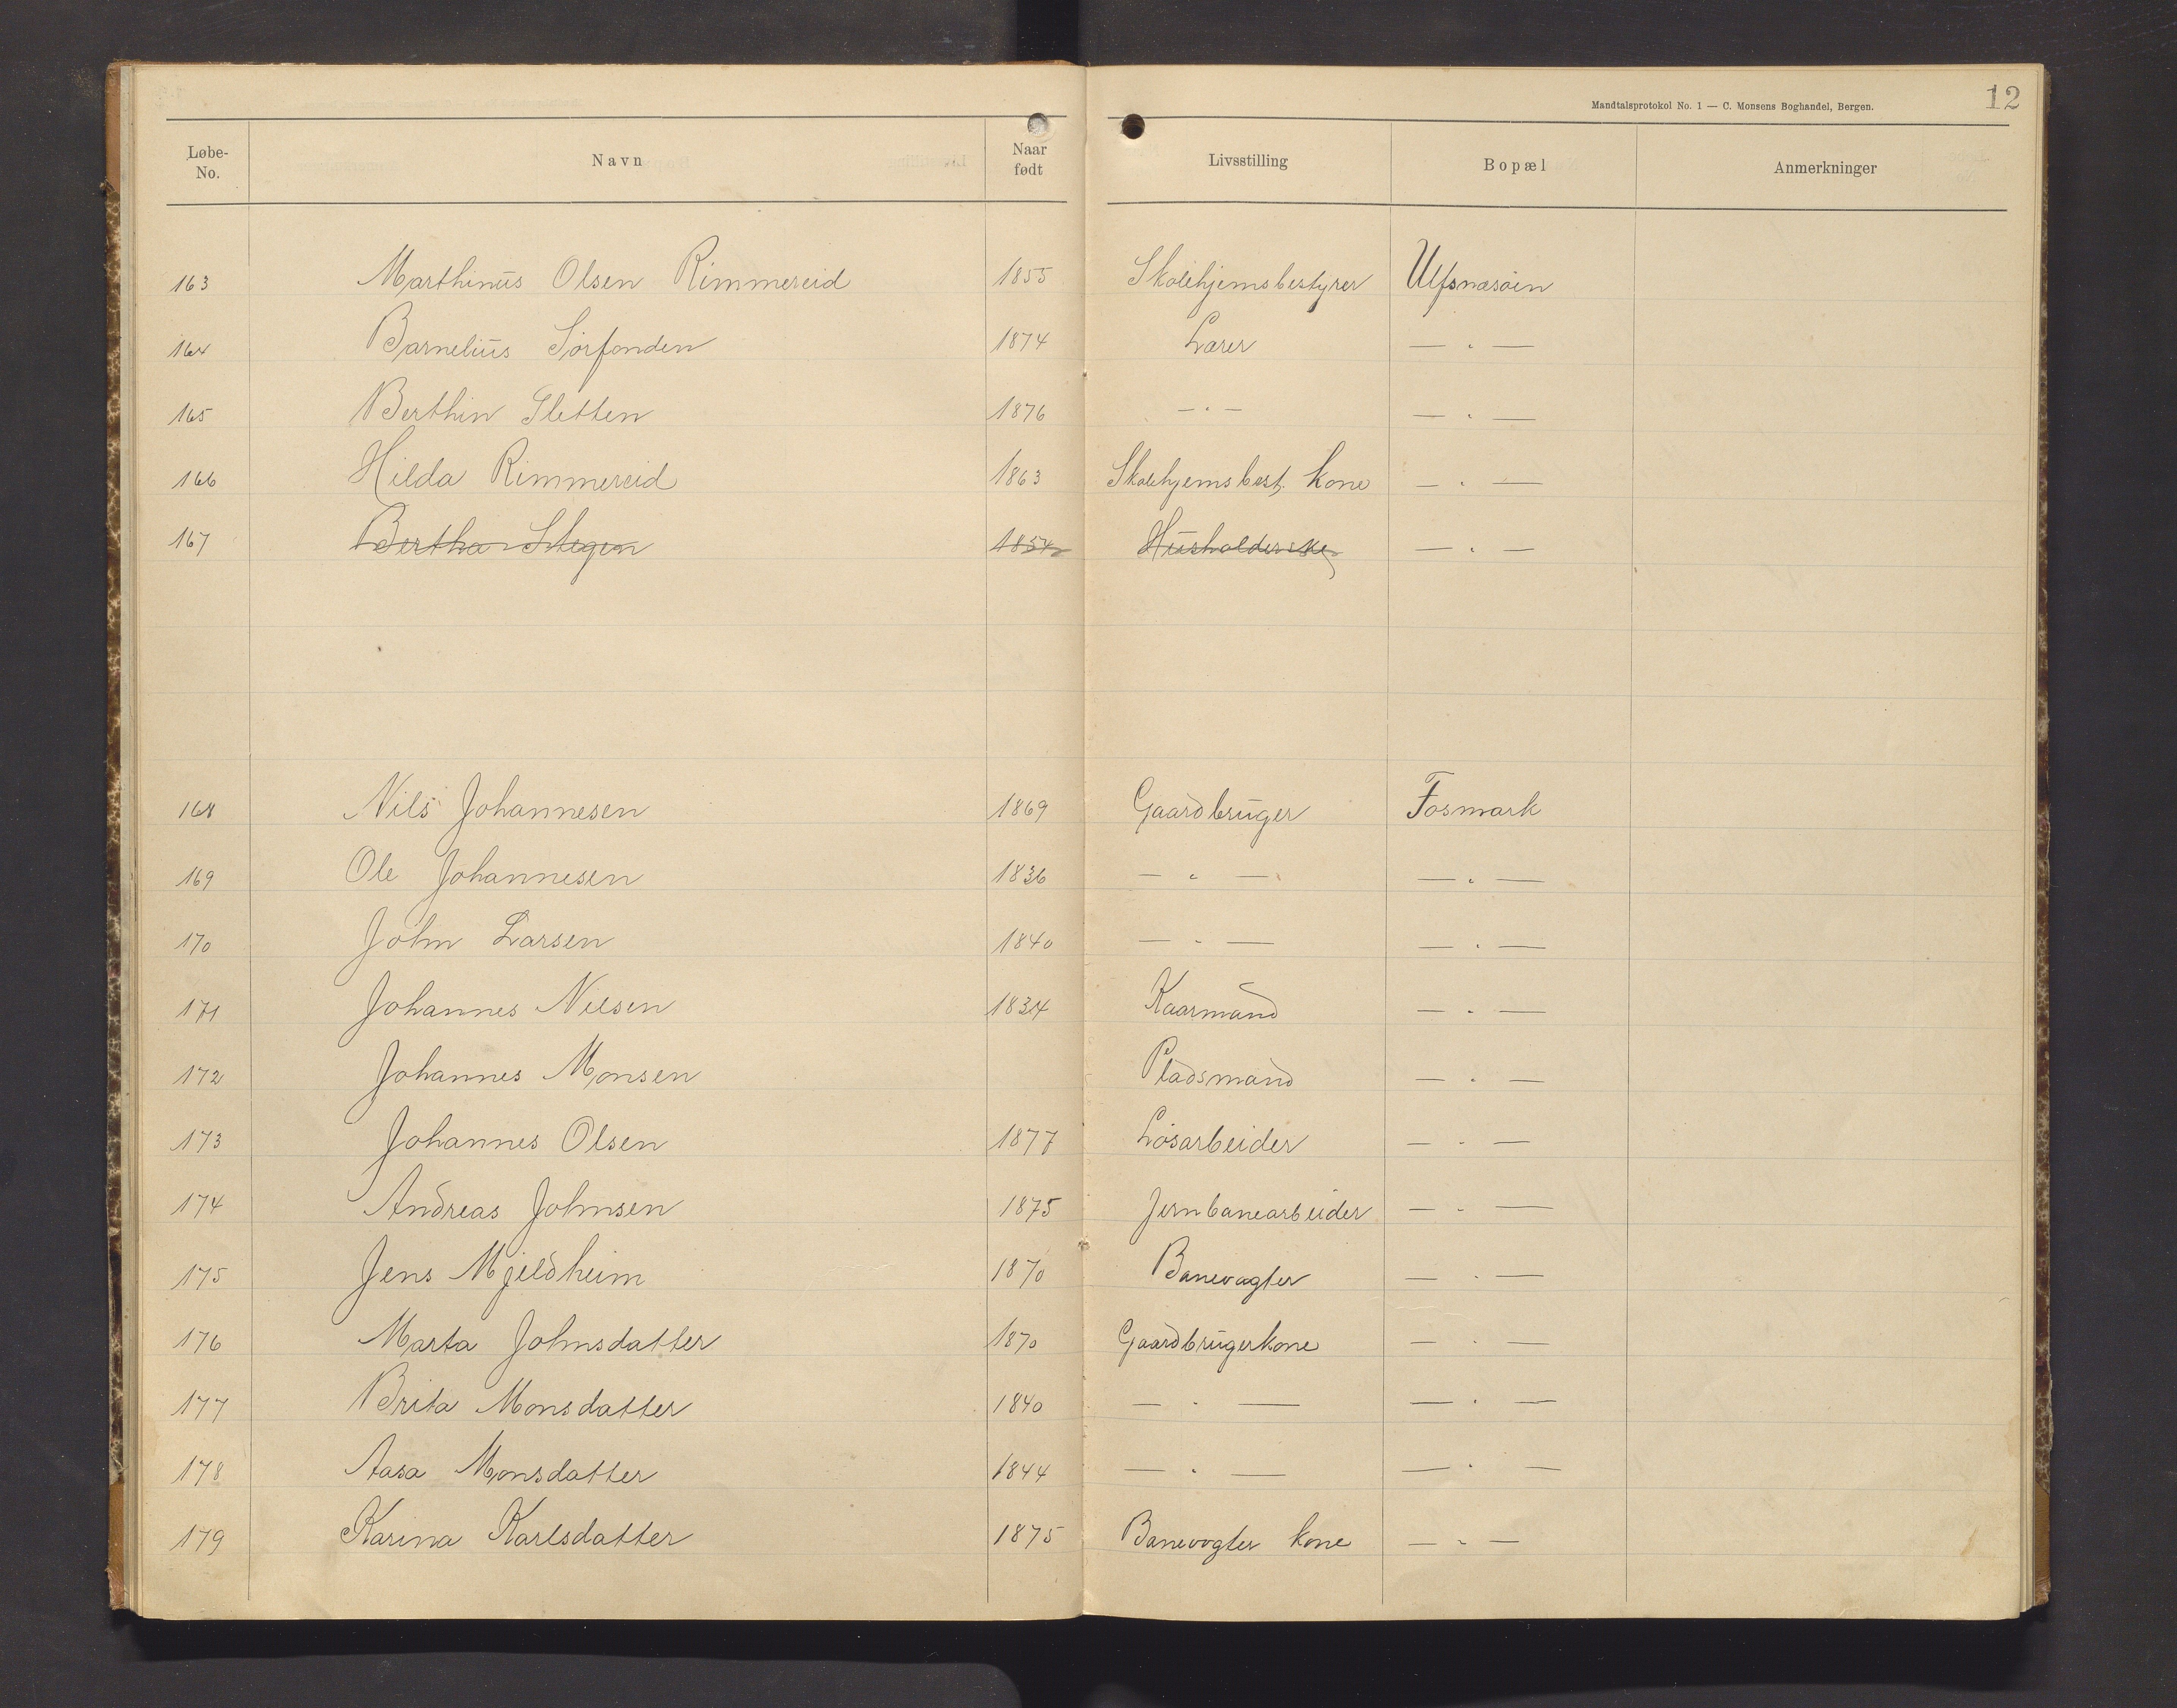 Mandtalsprotokol No. 1 — C. Monsens Boghandel, Bergen. 12
Løbe-No. Navn Naar født Livsstilling Bopæl Anmerkninger
163 Marthinus Olsen Rimmereid 1855 Skolehjemsbestyrer Ulfsnæsøen
164 Barnelius Sørfonden 1874 Lærer — " —
165 Berthin Sletten 1876 — " — — " —
166 Hilda Rimmereid 1863 Skolehjemsbest. kone — " —
167 Bertha Stegen 1854 Husholderske — " —
168 Nils Johannesen 1869 Gaardbruger Fosmark
169 Ole Johannesen 1836 — " — — " —
170 John Larsen 1840 — " — — " —
171 Johannes Nilsen 1834 Kaarmand — " —
172 Johannes Monsen Pladsmand — " —
173 Johannes Olsen 1877 Løsarbeider — " —
174 Andreas Johnsen 1875 Jernbanearbeider — " —
175 Jens Mjeldheim 1870 Banevogter — " —
176 Marta Johnsdatter 1870 Gaardbrugerkone — " —
177 Brita Monsdatter 1840 — " — — " —
178 Aasa Monsdatter 1844 — " — — " —
179 Karina Karlsdatter 1875 Banevogter kone — " —